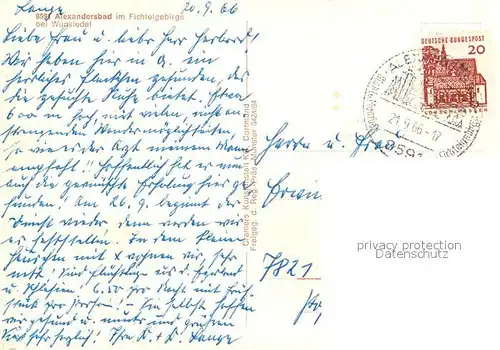 Lange 20.9.66
8591 Alexandersbad im Fichtelgebirge
bei Wunsiedel
Liebe Frau u. lieber Herr
Wir haben hier in A. ein
herrliches Fleckchen gefunden, das
die gesuchte Ruhe bietet. Etwa
600 m hoch, mit vielen, nicht an-
strengenden Wandermöglichkeiten,
so wie es der Arzt meinem Mann
empfahl! Hoffentlich hat er nun
auch die gewünschte Erholung hier ge-
funden. Am 26.9. beginnt der
Dienst wieder, dann werden wir
es feststellen. In dem kleinen
Häuschen mit X wohnen wir, sehr
nett! Sind Flüchtlinge aus d. Egerland
u. Schlesien! 6.50 pro Nacht mit Früh-
stück pro Person! Sie selbst hoffen
wir gesund u. munter und grüßen
Sie sehr herzlich! Ihre K. + L. Lange
Cramers Kunstanstalt KG, Dortmund
Freigeg. d. Reg. Präs. Münster
DEUTSCHE BUNDESPOST
20
LORSCH/HESSEN
21.9.66-17
8591
Herrn u. Frau
Erwin
7821
privacy protection
Datenschutz